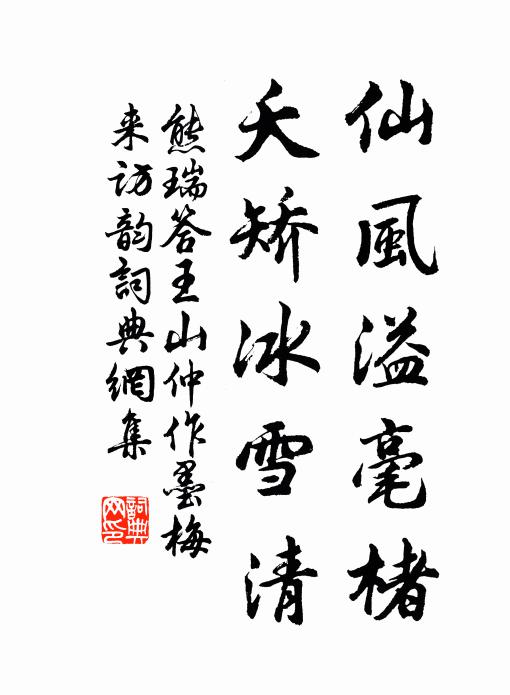 仙風溢毫楮
夭矯冰雪清
熊瑞答王山仲作墨梅
来访韵詞典網集
詞典网印